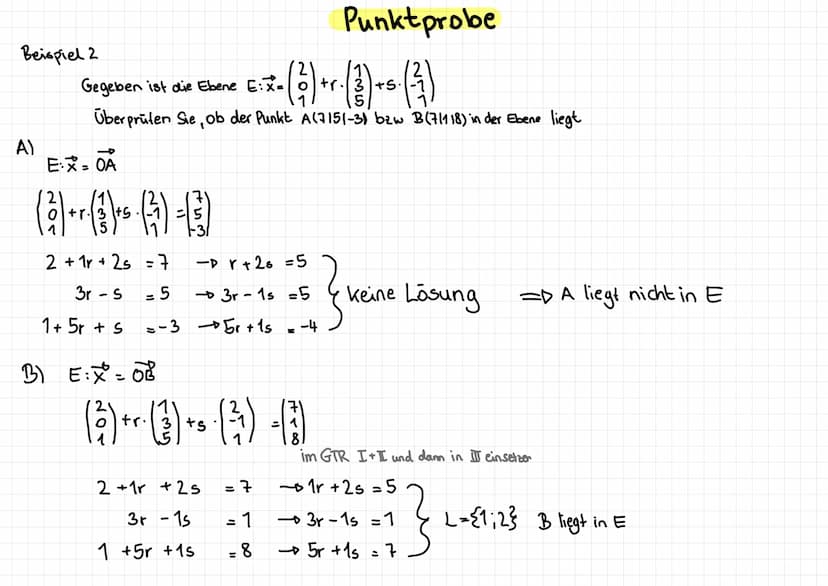 Punktprobe
Beispiel 2
Gegeben ist die Ebene E: x⃗ = (2 0 1) + r · (1 3 5) + s · (2 -1 1)
Überprüfen Sie, ob der Punkt A(7|5|-3) bzw B(7|1|8) in der Ebene liegt
A)
E: x⃗ = OA⃗
(2 0 1) + r · (1 3 5) + s · (2 -1 1) = (7 5 -3)
2 + 1r + 2s = 7 → r + 2s = 5
3r - s = 5 → 3r - 1s = 5 keine Lösung ⇒ A liegt nicht in E
1 + 5r + s = -3 → 5r + 1s = -4
B) E: x⃗ = OB⃗
(2 0 1) + r · (1 3 5) + s · (2 -1 1) = (7 1 8)
im GTR I + II und dann in III einsetzen
2 + 1r + 2s = 7 → 1r + 2s = 5
3r - 1s = 1 → 3r - 1s = 1 L = {1;2} B liegt in E
1 + 5r + 1s = 8 → 5r + 1s = 7